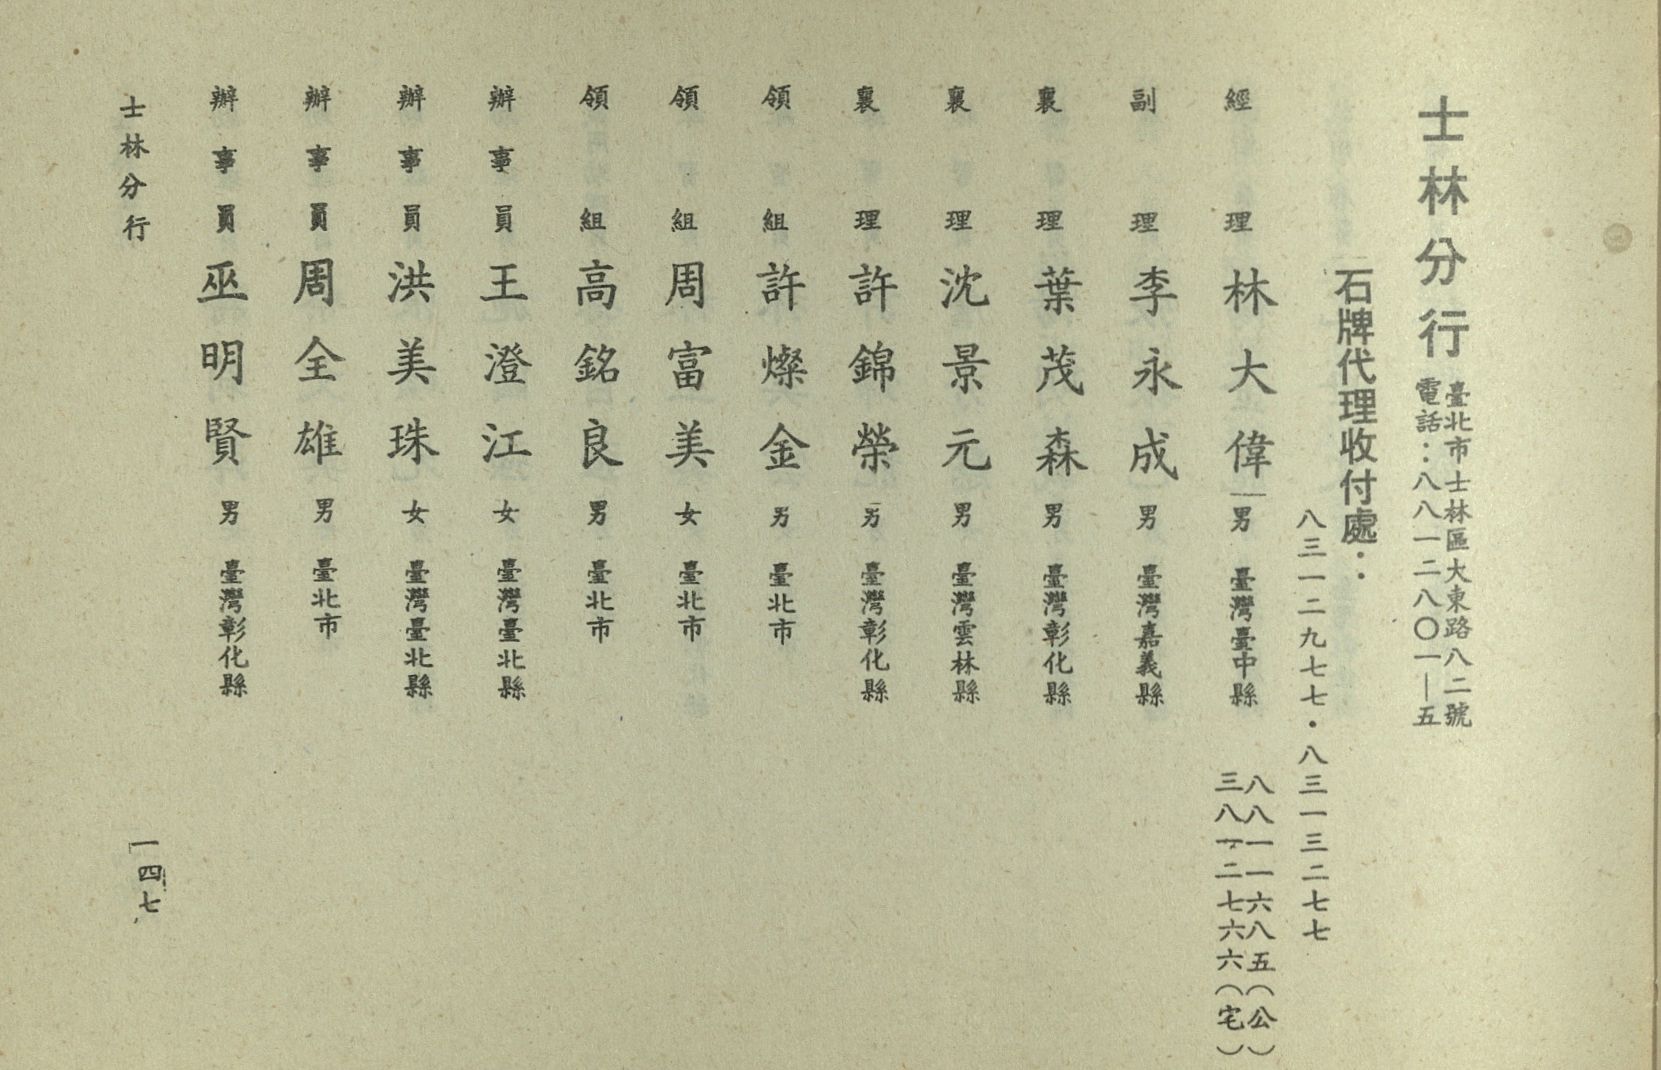 士林分行
臺北市士林區大東路八二號
電話：八八一二八〇一｜五
石牌代理收付處：
八三一二九七七・八三一三二七七
經理 林大偉 男 臺灣臺中縣
八八一一六八五（公）
三八一二七六六（宅）
副理 李永成 男 臺灣嘉義縣
襄理 葉茂森 男 臺灣彰化縣
襄理 沈景元 男 臺灣雲林縣
襄理 許錦榮 男 臺灣彰化縣
領組 許燦金 男 臺北市
領組 周富美 女 臺北市
領組 高銘良 男 臺北市
辦事員 王澄江 女 臺灣臺北縣
辦事員 洪美珠 女 臺灣臺北縣
辦事員 周全雄 男 臺北市
辦事員 巫明賢 男 臺灣彰化縣
士林分行
一四七